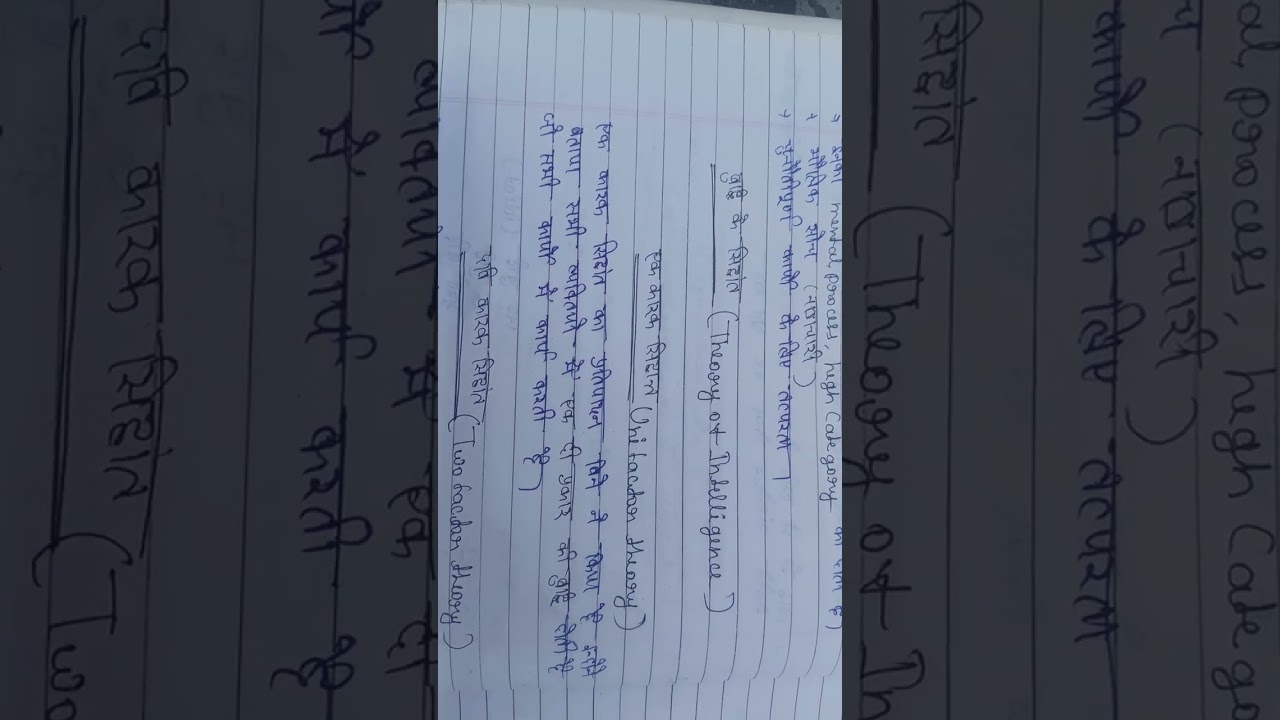 → इनका mental process, high Category का होता है।
→ मौलिक सोच (नवाचारी)
→ चुनौतीपूर्ण कार्यो के लिए तत्परता।
बुद्धि के सिद्धांत (Theory of Intelligence)
एक कारक सिद्धान्त (Uni factor theory)
एक कारक सिद्धांत का प्रतिपादन बिने ने किया है इन्होंने
बताया सभी व्यक्तियो में एक ही प्रकार की बुद्धि होती है
जो सभी कार्यो में कार्य करती है।
द्वि कारक सिद्धांत (Two factor theory)